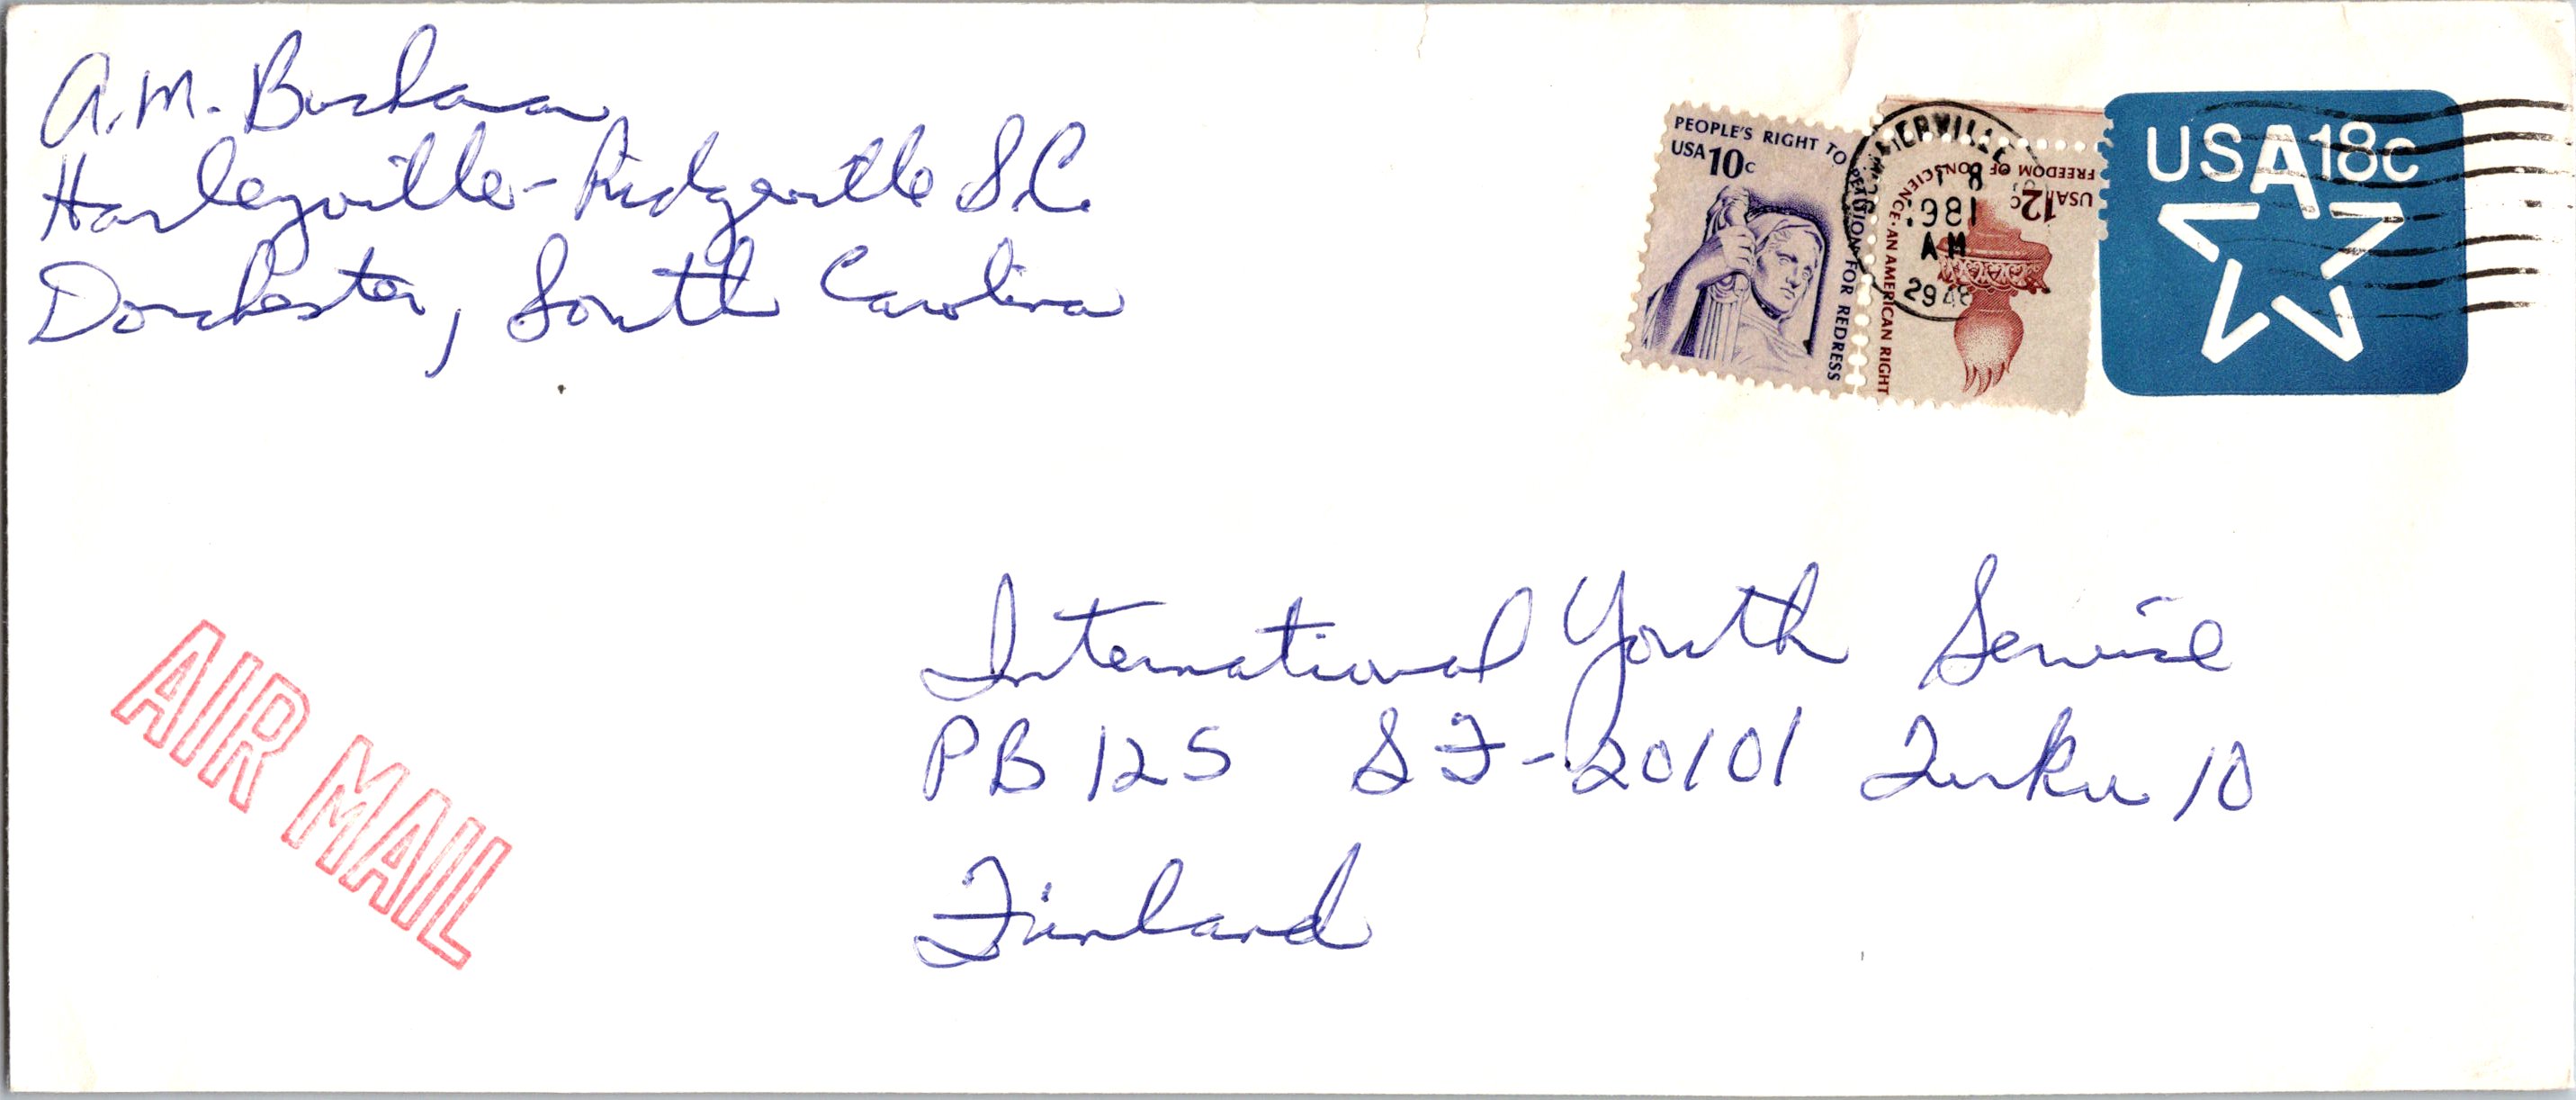 A.M. Buchanan
Harleyville-Ridgeville S.C.
Dorchester, South Carolina
PEOPLE'S RIGHT TO
PETITION FOR REDRESS
USA 10c
FREEDOM OF CONSCIENCE · AN AMERICAN RIGHT
USA 12c
8
1981
AM
USA 18c
AIR MAIL
International Youth Service
PB 125 SF-20101 Turku 10
Finland